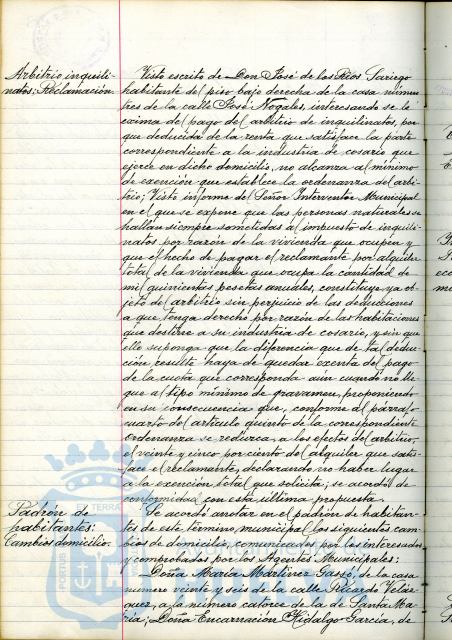 Arbitrio inquili-
natos: Reclamación
Visto escrito de Don José de los Ríos Gariego
habitante del piso bajo derecha de la casa número
tres de la calle José Nogales, interesando se le
exima del pago del arbitrio de inquilinatos, por
que deducida de la renta que satisface la parte
correspondiente a la industria de cosario que
ejerce en dicho domicilio, no alcanza al mínimo
de exención que establece la ordenanza del arbi-
trio; Visto informe del Señor Interventor Municipal
en el que se expone que las personas naturales se
hallan siempre sometidas al impuesto de inquili-
natos por razón de la vivienda que ocupen y
que el hecho de pagar el reclamante por alquiler
total de la vivienda que ocupa la cantidad de
mil quinientas pesetas anuales, constituye ya ob-
jeto del arbitrio sin perjuicio de las deducciones
a que tenga derecho por razón de las habitaciones
que destine a su industria de cosario, y sin que
ello suponga que la diferencia que de tal deduc-
ción, resulte haya de quedar exenta del pago
de la cuota que corresponda aún cuando no lle-
gue al tipo mínimo de gravamen, proponiendo
en su consecuencia que, conforme al párrafo
cuarto del artículo quinto de la correspondiente
ordenanza se reduzca, a los efectos del arbitrio,
el veinte y cinco por ciento del alquiler que satis-
face el reclamante, declarando no haber lugar
a la exención total que solicita; se acordó de
conformidad con esta última propuesta.
Padrón de
habitantes:
Cambios domicilio:
Se acordó anotar en el padrón de habitan-
tes de este término municipal los siguientes cam-
bios de domicilio, comunicados por los interesados
y comprobados por los Agentes Municipales:
Doña María Martínez Gassó, de la casa
número veinte y seis de la calle Ricardo Veláz-
quez, a la número catorce de la de Santa Ma-
ría; Doña Encarnación Hidalgo García, de